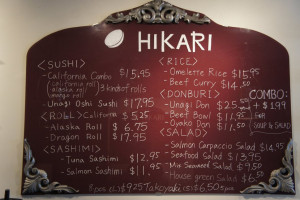 HIKARI
<SUSHI>
- California Combo $15.95
(california roll
alaska roll
mango roll) 3 kind of rolls
- Unagi Oshi Sushi $17.95
<ROLL> California $ 5.25
- Alaska Roll $ 6.75
- Dragon Roll $ 17.95
<SASHIMI>
- Tuna Sashimi $12.95
- Salmon Sashimi $11.95
<RICE>
- Omelette Rice $15.95
- Beef Curry $14.50
<DONBURI>
- Unagi Don $25.50
- Beef Bowl $11.95
- Oyako Don $11.50
COMBO!
+ $1.99
For
SOUP & SALAD
<SALAD>
- Salmon Carpaccio Salad $14.95
- Seafood Salad $13.95
- Mix Seaweed Salad $9.50
- House green Salad $6.50
$9.25 Takoyaki $6.50